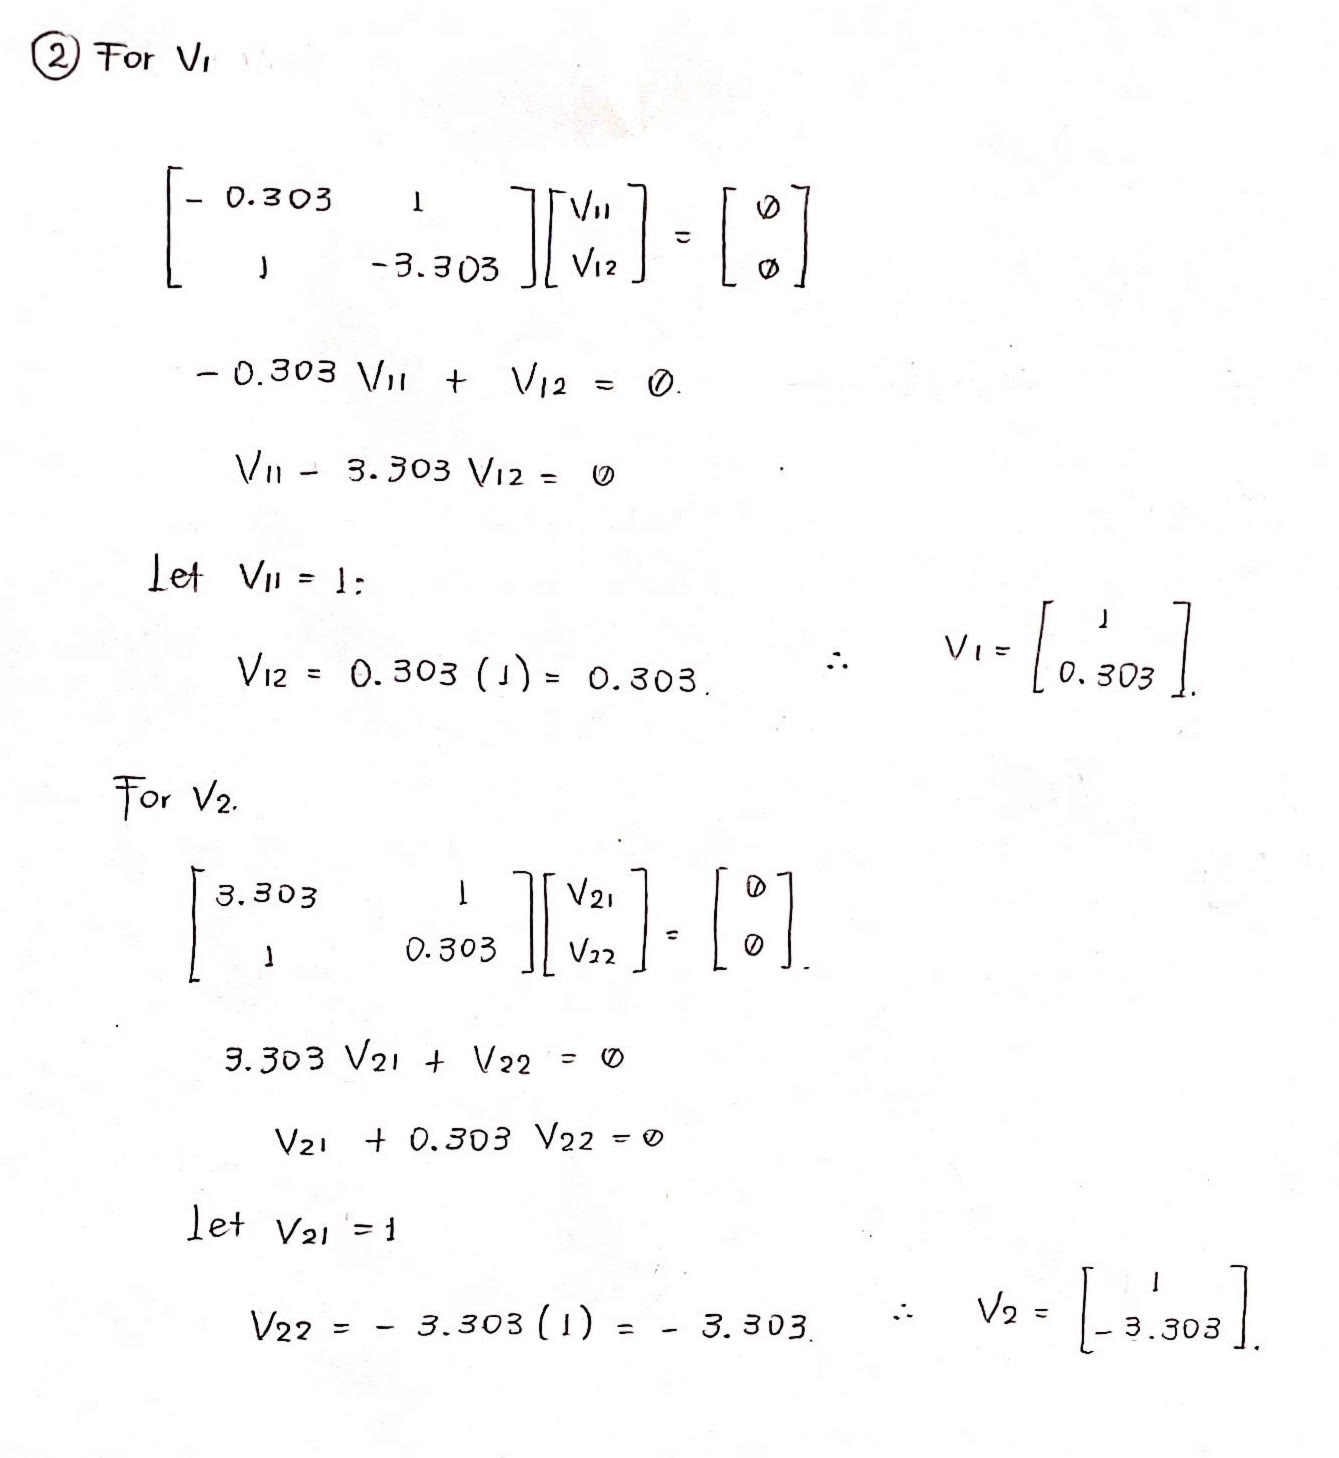 ② For V1
[ - 0.303 1 ] [ V11 ] = [ 0 ]
[ 1 -3.303 ] [ V12 ] [ 0 ]
- 0.303 V11 + V12 = 0.
V11 - 3.303 V12 = 0
Let V11 = 1:
V12 = 0.303 (1) = 0.303. ∴ V1 = [ 1 0.303 ].
For V2.
[ 3.303 1 ] [ V21 ] = [ 0 ]
[ 1 0.303 ] [ V22 ] [ 0 ].
3.303 V21 + V22 = 0
V21 + 0.303 V22 = 0
let V21 = 1
V22 = - 3.303 (1) = - 3.303. ∴ V2 = [ 1 - 3.303 ].